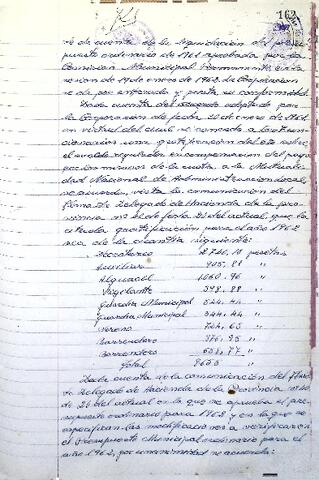 162
se da cuenta de la liquidación del presu-
puesto ordinario de 1961 aprobada por la
Comisión Municipal Permanente en se-
sion de 19 de enero de 1962. La Corporación
se da por enterada y presta su conformidad.
Dada cuenta del acuerdo adoptado por
la Corporación de fecha 20 de enero de 1961
en virtud del cual se concede a los fun-
cionarios una gratificación del
sueldo regulador en compensación del pago
de la cuota a la Mutuali-
dad Nacional de Administración Local,
se acuerda, vista la comunicación del
Iltmo Sr. Delegado de Hacienda de la pro-
vincia nº de fecha del actual, que la
citada gratificación para el año 1962
sea de la cuantía siguiente:
Secretario 2.740, pesetas
Auxiliar 905, "
Alguacil 1060,96 "
Vigilante 598,88 "
Guardia Municipal 544,44 "
Guardia Municipal 544,44 "
Sereno "
Barrendero "
Barrendero "
Total "
Dada cuenta de la comunicación del Iltmo
Sr Delegado de Hacienda de la Provincia nº
de 26 del actual en la que se aprueba el pre-
supuesto ordinario para 1962 y en la que se
especifican las modificaciones a verificar en
el Presupuesto Municipal ordinario para el
año 1962, por unanimidad se acuerda: